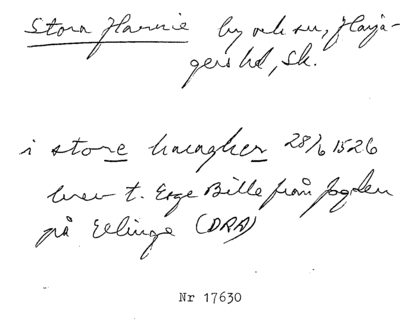 Stora Harrie by och sn, Harja-
gers hd, Sk.
i store haragher 28/6 1526
brev t. Eske Bille från fogden
på Ellinge (DRA)
Nr 17630